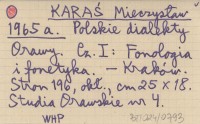 KARAŚ Mieczysław
1965 a. Polskie dialekty
Orawy. Cz. I: Fonologia
i fonetyka. – Kraków.
Stron 196, okł., cm 25 x 18.
Studia Orawskie nr 4.
WHP